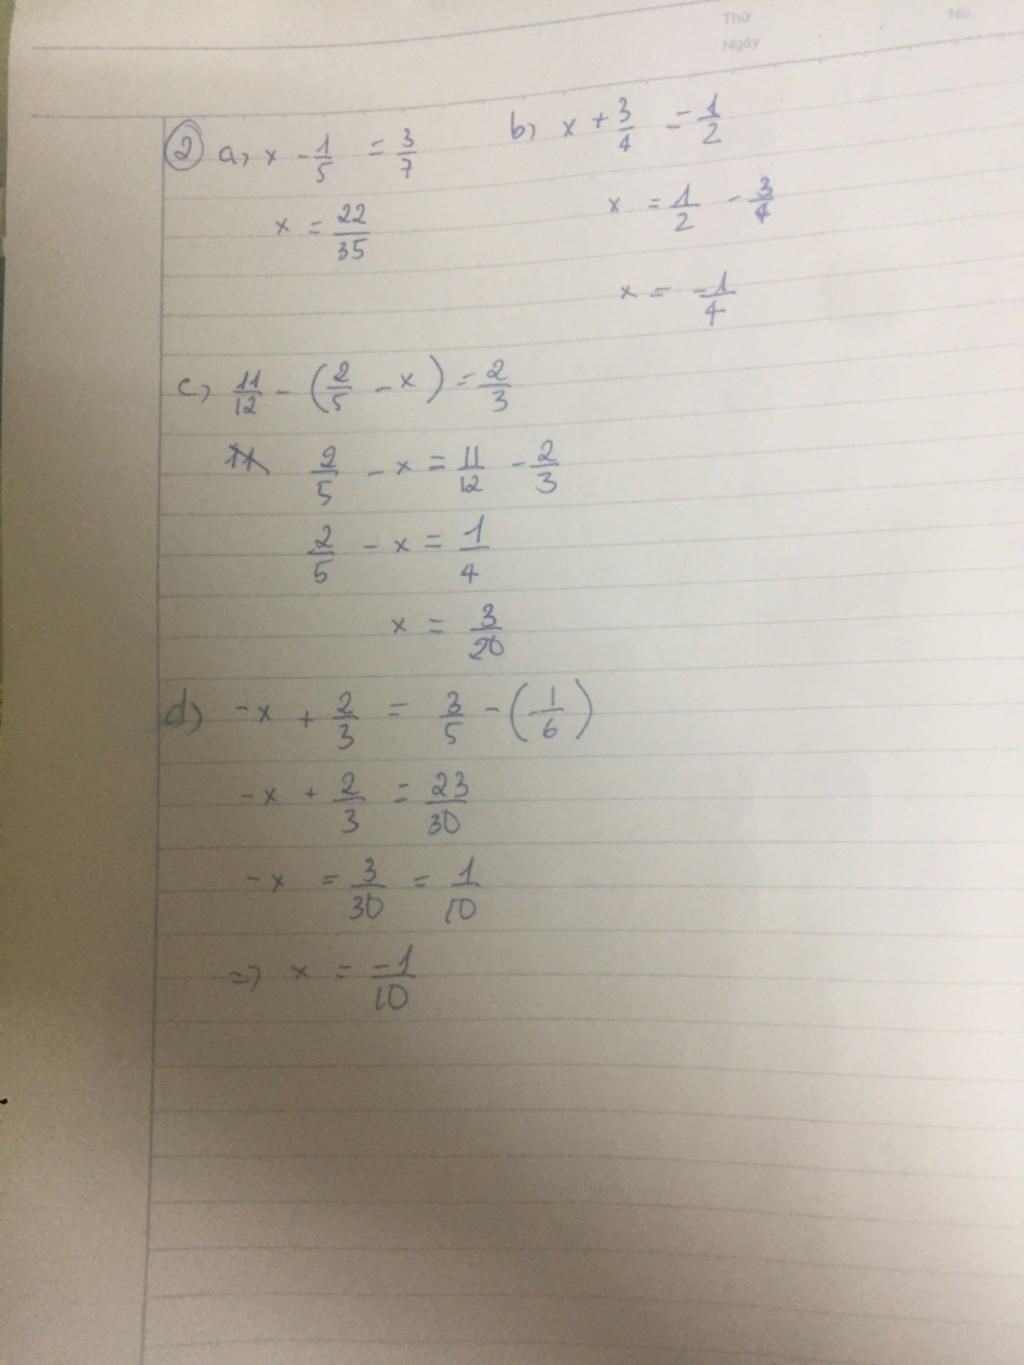 Thứ
No.
Ngày
② a, x - 1/5 = 3/7
x = 22/35
b, x + 3/4 = 1/2
x = 1/2 - 3/4
x = -1/4
c, 11/12 - (2/5 - x) = 2/3
2/5 - x = 11/12 - 2/3
2/5 - x = 1/4
x = 3/20
d) -x + 2/3 = 3/5 - (-1/6)
-x + 2/3 = 23/30
-x = 3/30 = 1/10
=> x = -1/10